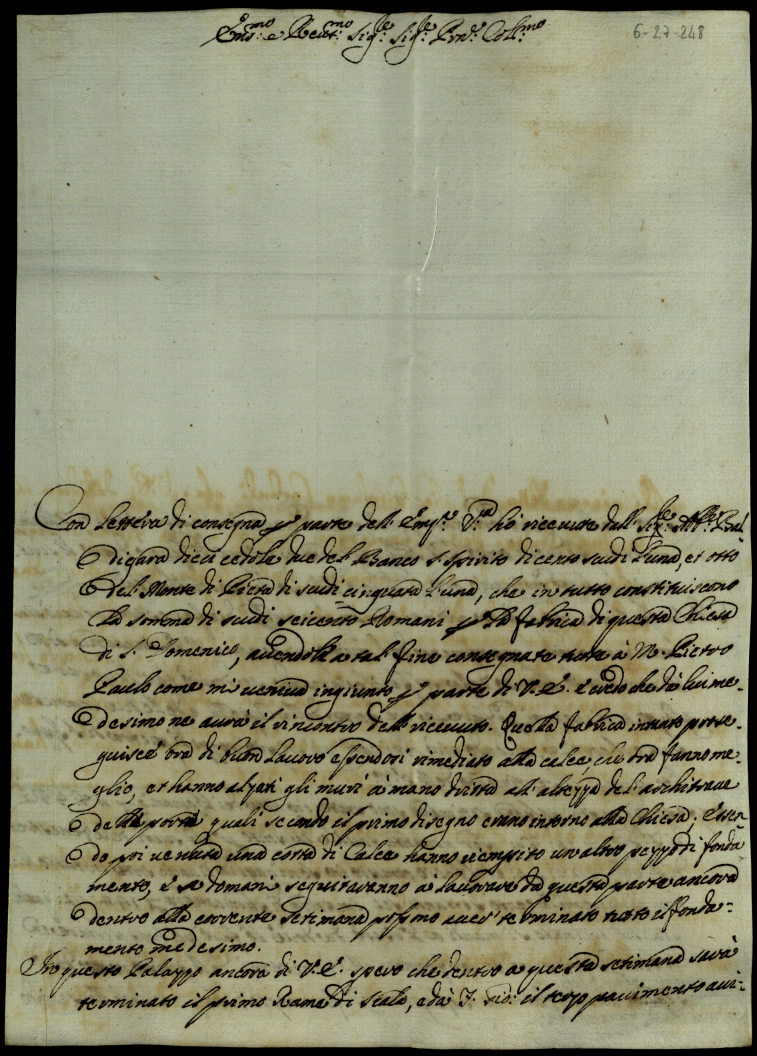 Em.mo e Reu.mo Sig.re Sig.re Pron.e Col.mo
6-27-248
Con lettera di consegna p parte dell' Em.za V.ra hò riceuute dall' Sig.re Abb.e Bal
digara dieci cedole due del Banco S. Spirito di cento scudi l'una, et otto
del Monte di Pietà di scudi cinquata l'una, che in tutto constituiscono
la somma di scudi seicento Romani p la fabrica di questa Chiesa
di S. Domenico, auendole a tal fine consegnate tutte à M. Pietro
Paulo come mi ueniua ingiunto p parte di V. E. e credo che dà lui me-
desimo ne aurà il rincontro dell riceuuto. Quella fabrica intanto prose-
guisce ora di buon lauoro essendosi rimediato alla calce, che ora fanno me-
glio, et hanno alzati gli muri à mano dritta all' altezza del architraue
della porta quali secondo il primo disegno erano intorno alla Chiesa; essen
do poi uenuta una cotta di Calce hanno riempito un altro pezzo di fonda
mento, e se domani seguitaranno à lauorare da questa parte ancora
dentro alla corrente settimana possono auer' terminato tutto il fonda-
mento medesimo.
In questo Palazzo ancora di V. E. spero che dentro a questa settimana sarà
terminato il primo Ramo di Scala, e dà F. Gio: il terzo pauimento aui-